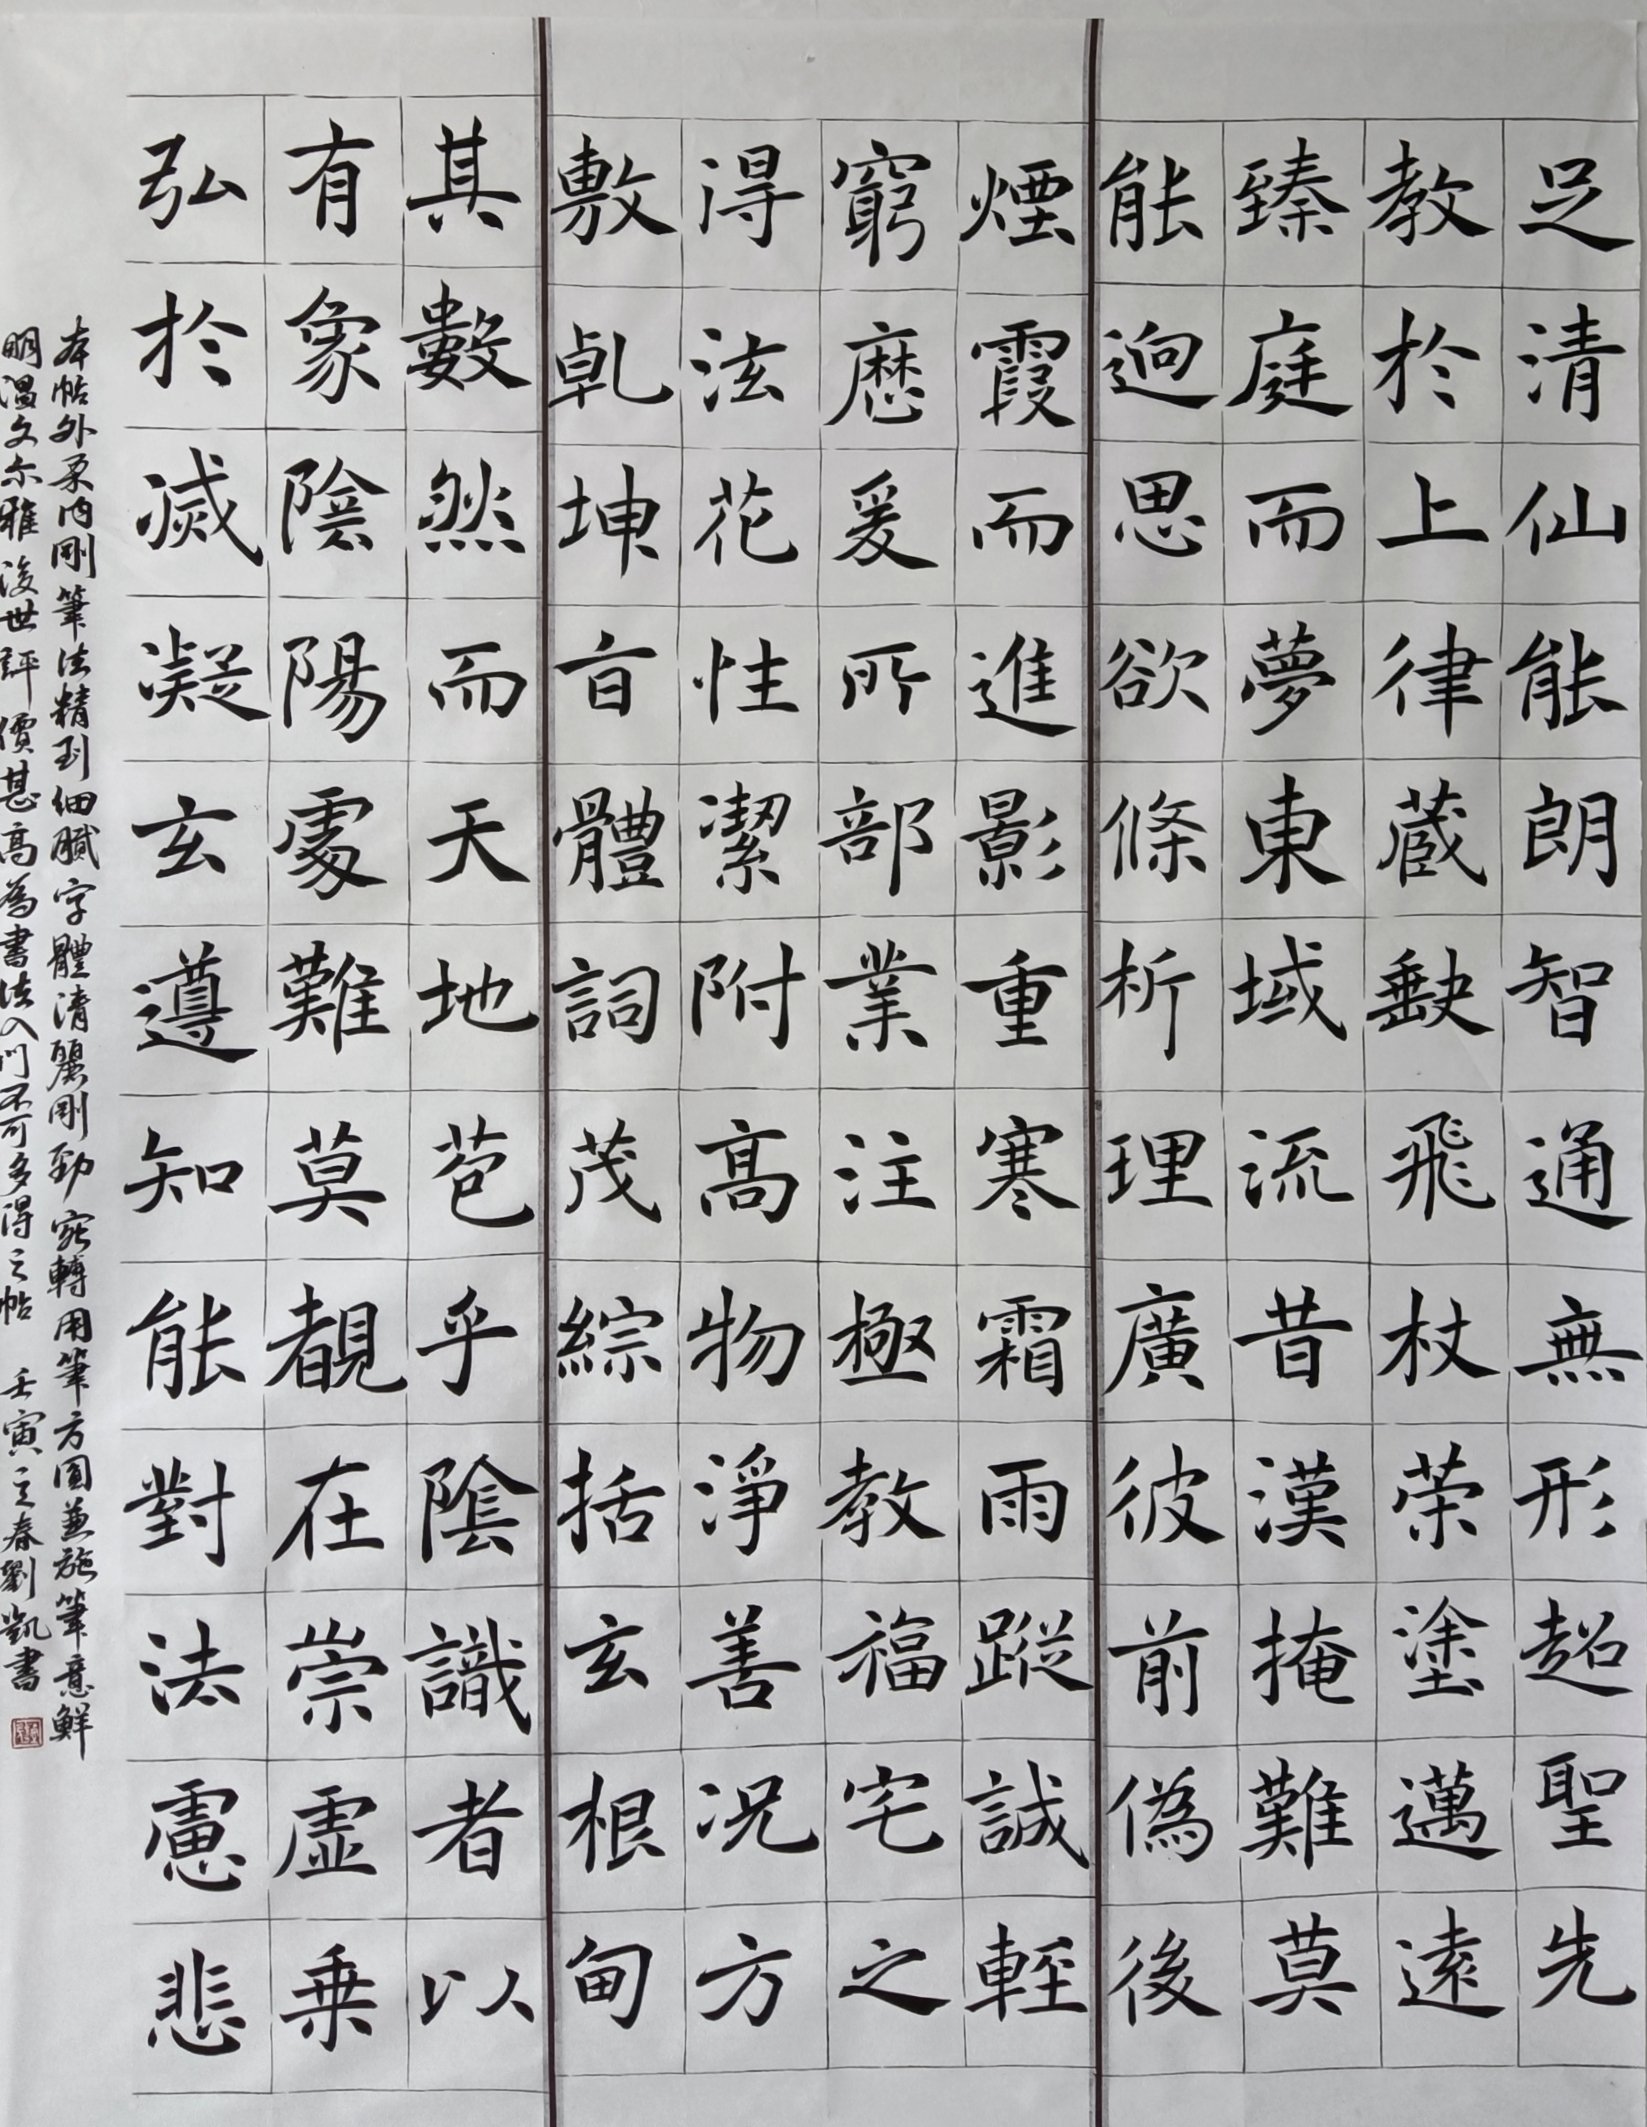 足清仙能朗智通無形超聖先
教於上律蔵缺飛杖荣塗邁遠
臻庭而夢東域流昔漢掩難莫
能迥思欲條析理廣彼前偽後
煙霞而進影重寒霜雨蹤誠輕
窮歷爰所部業注極教福宅之
得法花性潔附高物淨善况方
敷乹坤亘體詞茂綜括玄根甸
其數然而天地苞乎陰識者以
有象陰陽處難莫覩在崇虛乗
弘於滅凝玄遵知能對法慮悲
本帖外柔内剛筆法精到細膩字體清麗剛勁宛轉用筆方圓兼施筆意鮮
明温文尔雅後世評價甚高為書法入门不可多得之帖 壬寅之春劉凱書